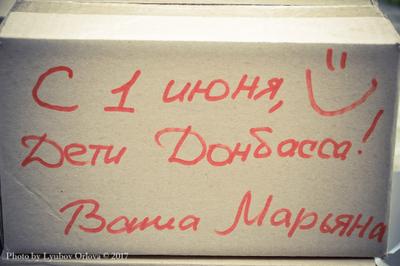 С 1 июня,
Дети Донбасса!
Ваша Марьяна
Photo by Lyubov Orlova © 2017